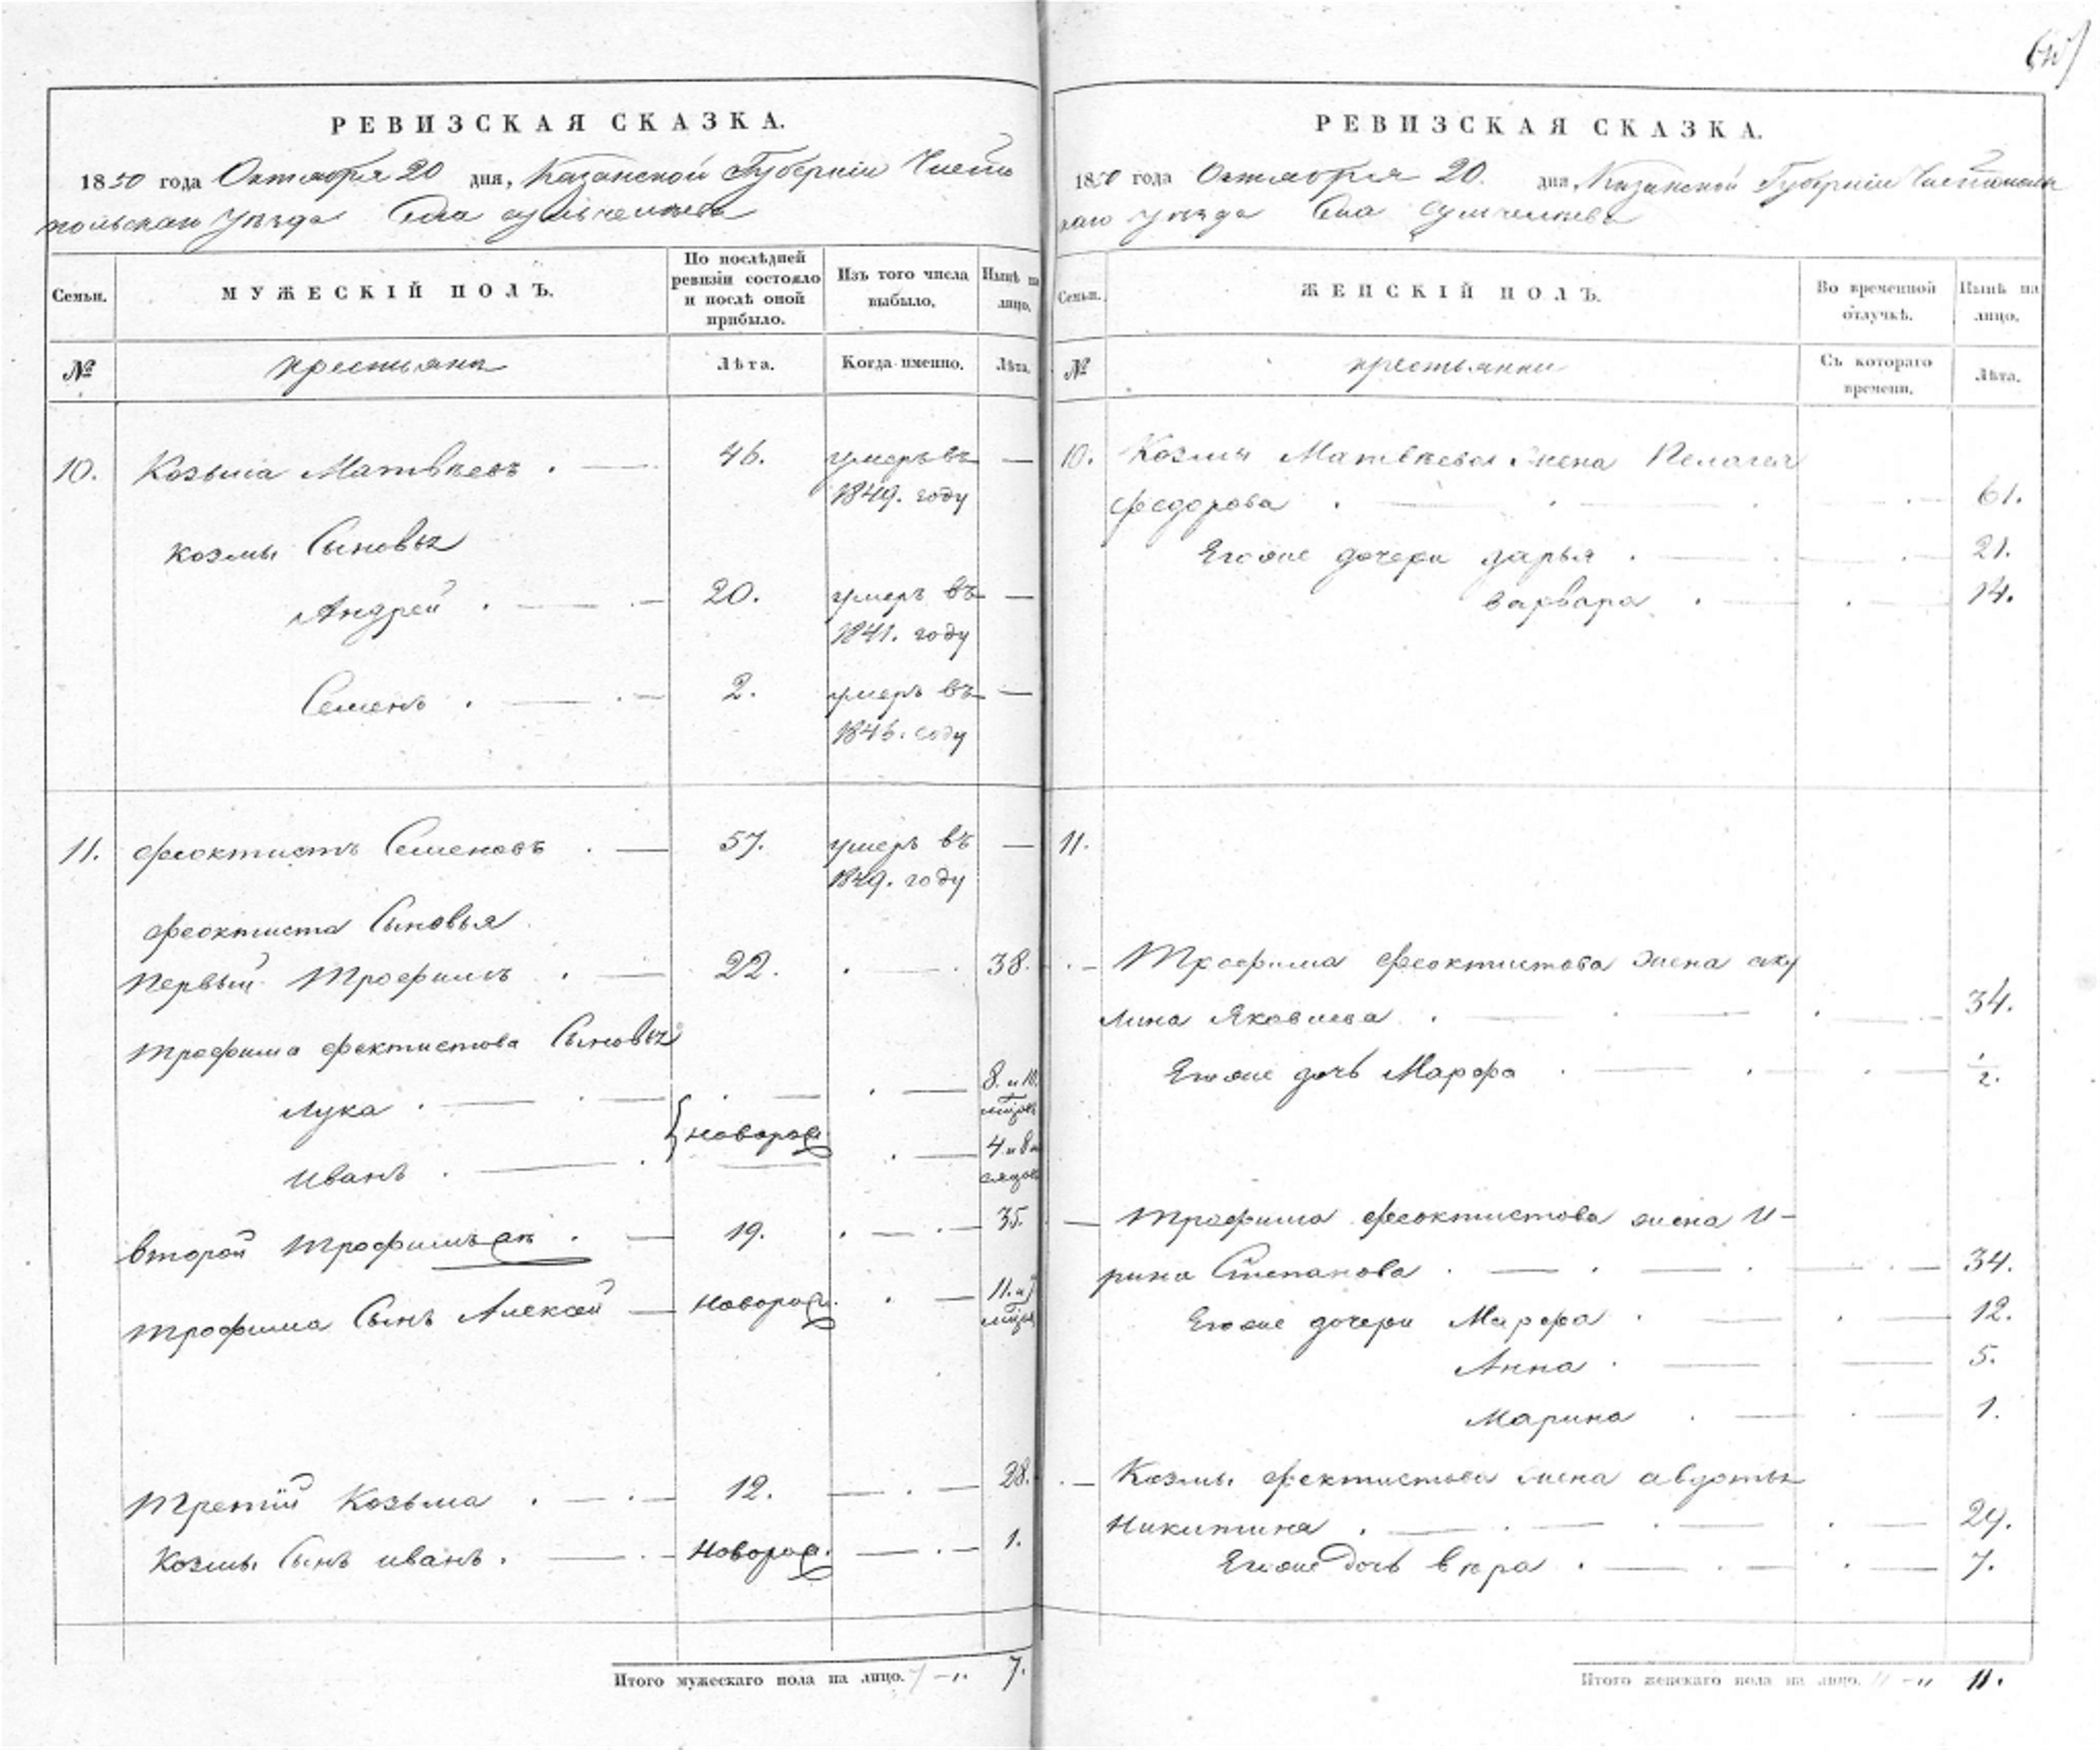 РЕВИЗСКАЯ СКАЗКА.
1850 года Октября 20 дня, Казанской Губерніи Чисто
польскаго уѣзда Села
Семьи.
МУЖЕСКІЙ ПОЛЪ.
По послѣдней ревизіи состояло и послѣ оной прибыло.
Изъ того числа выбыло.
Нынѣ на лицо.
№
крестьяне
Лѣта.
Когда именно.
Лѣта.
10. Козьма Матвѣевъ . — 46. умеръ въ —
1849. году
Козмы Сыновья
Андрей . — . — 20. умеръ въ —
1841. году
Семенъ . — . — 2. умеръ въ —
1846. году
11. Феоктистъ Семеновъ . — 57. умеръ въ —
1849. году
Феоктиста Сыновья
Первый Трофимъ . — 22. . — . 38.
Трофима Фектистова Сыновья
Лука . — . — . — . — 8. и 10.
Новорож
Иванъ . — . . — 4 и 8 м
сяцовъ
Второй Трофимъ . — 19. . — . — 35.
Трофима Сынъ Алексей — Новорож. . — 11. и
Третій Козьма . — . — 12. — . — 28.
Козмы Сынъ Иванъ . — . — Новорож. — . — 1.
Итого мужескаго пола на лицо. 7 — „ 7.
РЕВИЗСКАЯ СКАЗКА.
1850 года Октября 20. дня Казанской Губерніи Чистополь
скаго уѣзда Села
Семьи.
ЖЕНСКІЙ ПОЛЪ.
Во временной отлучкѣ.
Нынѣ на лицо.
№
крестьянки
Съ котораго времени.
Лѣта.
10. Козмы Матвѣева жена Пелагея
Федорова . — . — . . — 61.
Его же дочери Дарья . — . — 21.
Варвара . — . — 14.
11.
. — Трофима Феоктистова жена аку
лина Яковлева . — . — . — . — 34.
Его же дочь Марфа . — . — . — 1/2.
— Трофима Феоктистова жена И-
рина Степанова . — . — . — . — 34.
Его же дочери Марфа . — . — 12.
Анна . — — 5.
Марина . — . — 1.
. — Козмы Фектистова жена авдотья
Никитина . — . — . — . — 29.
Его же дочь вѣра . — . — . — 7.
Итого женскаго пола на лицо. 11 — „ 11.